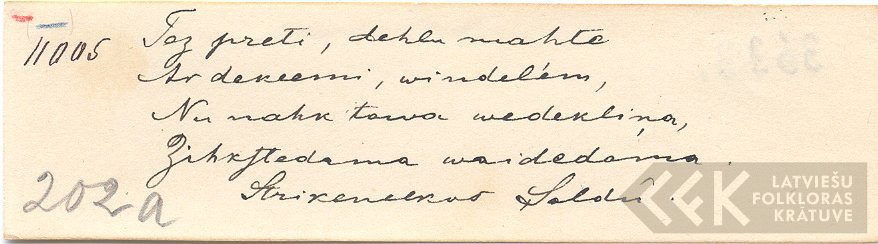 11005
Tez preti, dehlu mahte
Ar dekeemi, windelēm,
Nu nahk tawa wedekliņa,
Zihkstedama waidedama.
Strikeneekos Saldū.
202a
LATVIEŠU
FOLKLORAS
KRĀTUVE